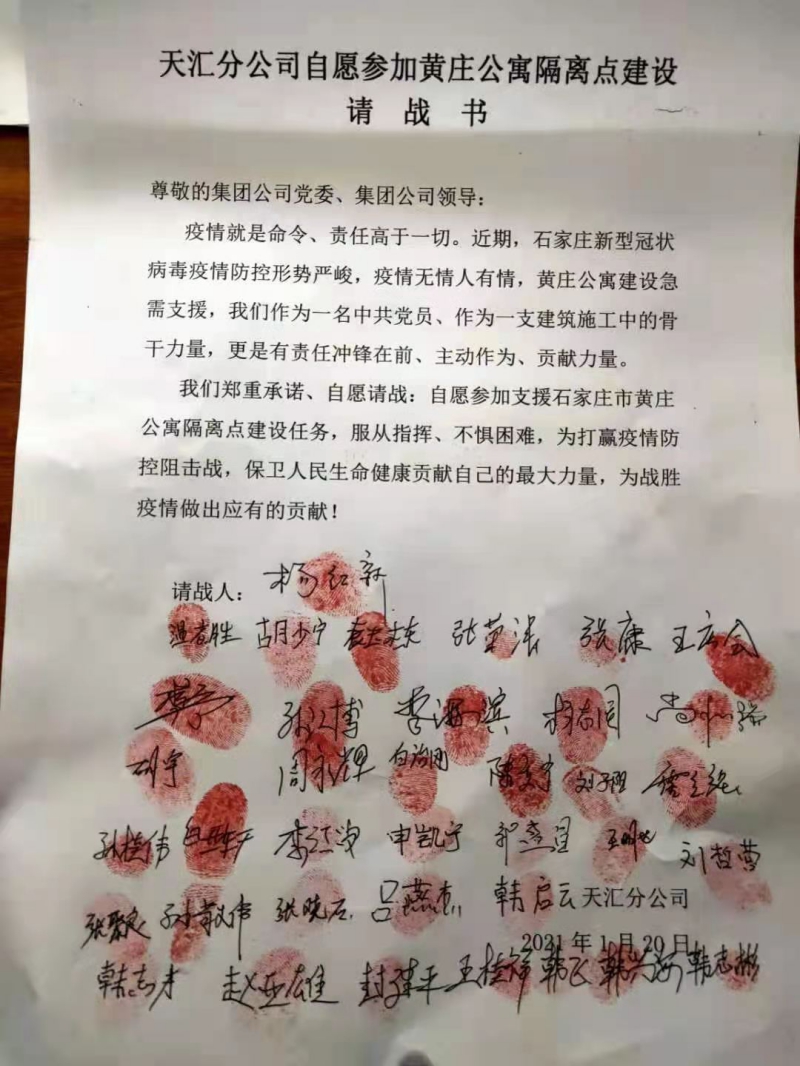 天汇分公司自愿参加黄庄公寓隔离点建设
请 战 书
尊敬的集团公司党委、集团公司领导：
疫情就是命令、责任高于一切。近期，石家庄新型冠状
病毒疫情防控形势严峻，疫情无情人有情，黄庄公寓建设急
需支援，我们作为一名中共党员、作为一支建筑施工中的骨
干力量，更是有责任冲锋在前、主动作为、贡献力量。
我们郑重承诺、自愿请战：自愿参加支援石家庄市黄庄
公寓隔离点建设任务，服从指挥、不惧困难，为打赢疫情防
控阻击战，保卫人民生命健康贡献自己的最大力量，为战胜
疫情做出应有的贡献！
请战人：杨红新
胡少宁 张康
周永辉
孙楼伟 申凯宁 刘哲营
张聚良 张晓石 吕燕杰 韩启云 天汇分公司
2021 年 1 月 20 日
韩志才 赵亚雄 封建平 王桂锋 韩飞 韩志彬